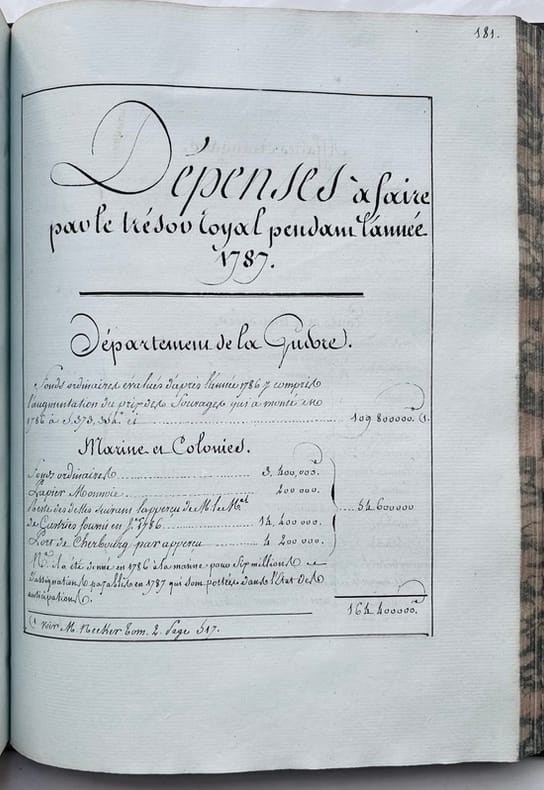 181.
Dépenses à faire
par le trésor royal pendant l'année
1787.
Département de la Guerre.
Fonds ordinaires évalués d'après l'année 1786 y compris
l'augmentation du prix des fourages qui a monté en
1786 à et 109 800000. (1.
Marine et Colonies.
fonds ordinaires 400,000.
Papier Monnoie 200 000.
Reste des dettes suivant l'apperçu de M. le Mal
de Castries fourni en 1786 14,400 000. 54600000
Port de Cherbourg par apperçu 4 200 000.
Na. il a été donné en 1786 à la marine pour six millions
d'assignations payables en 1787 qui sont portées dans l'Etat des
anticipations.
164 400000.
(1 voir M. Necker Tom. 2. Page 517.